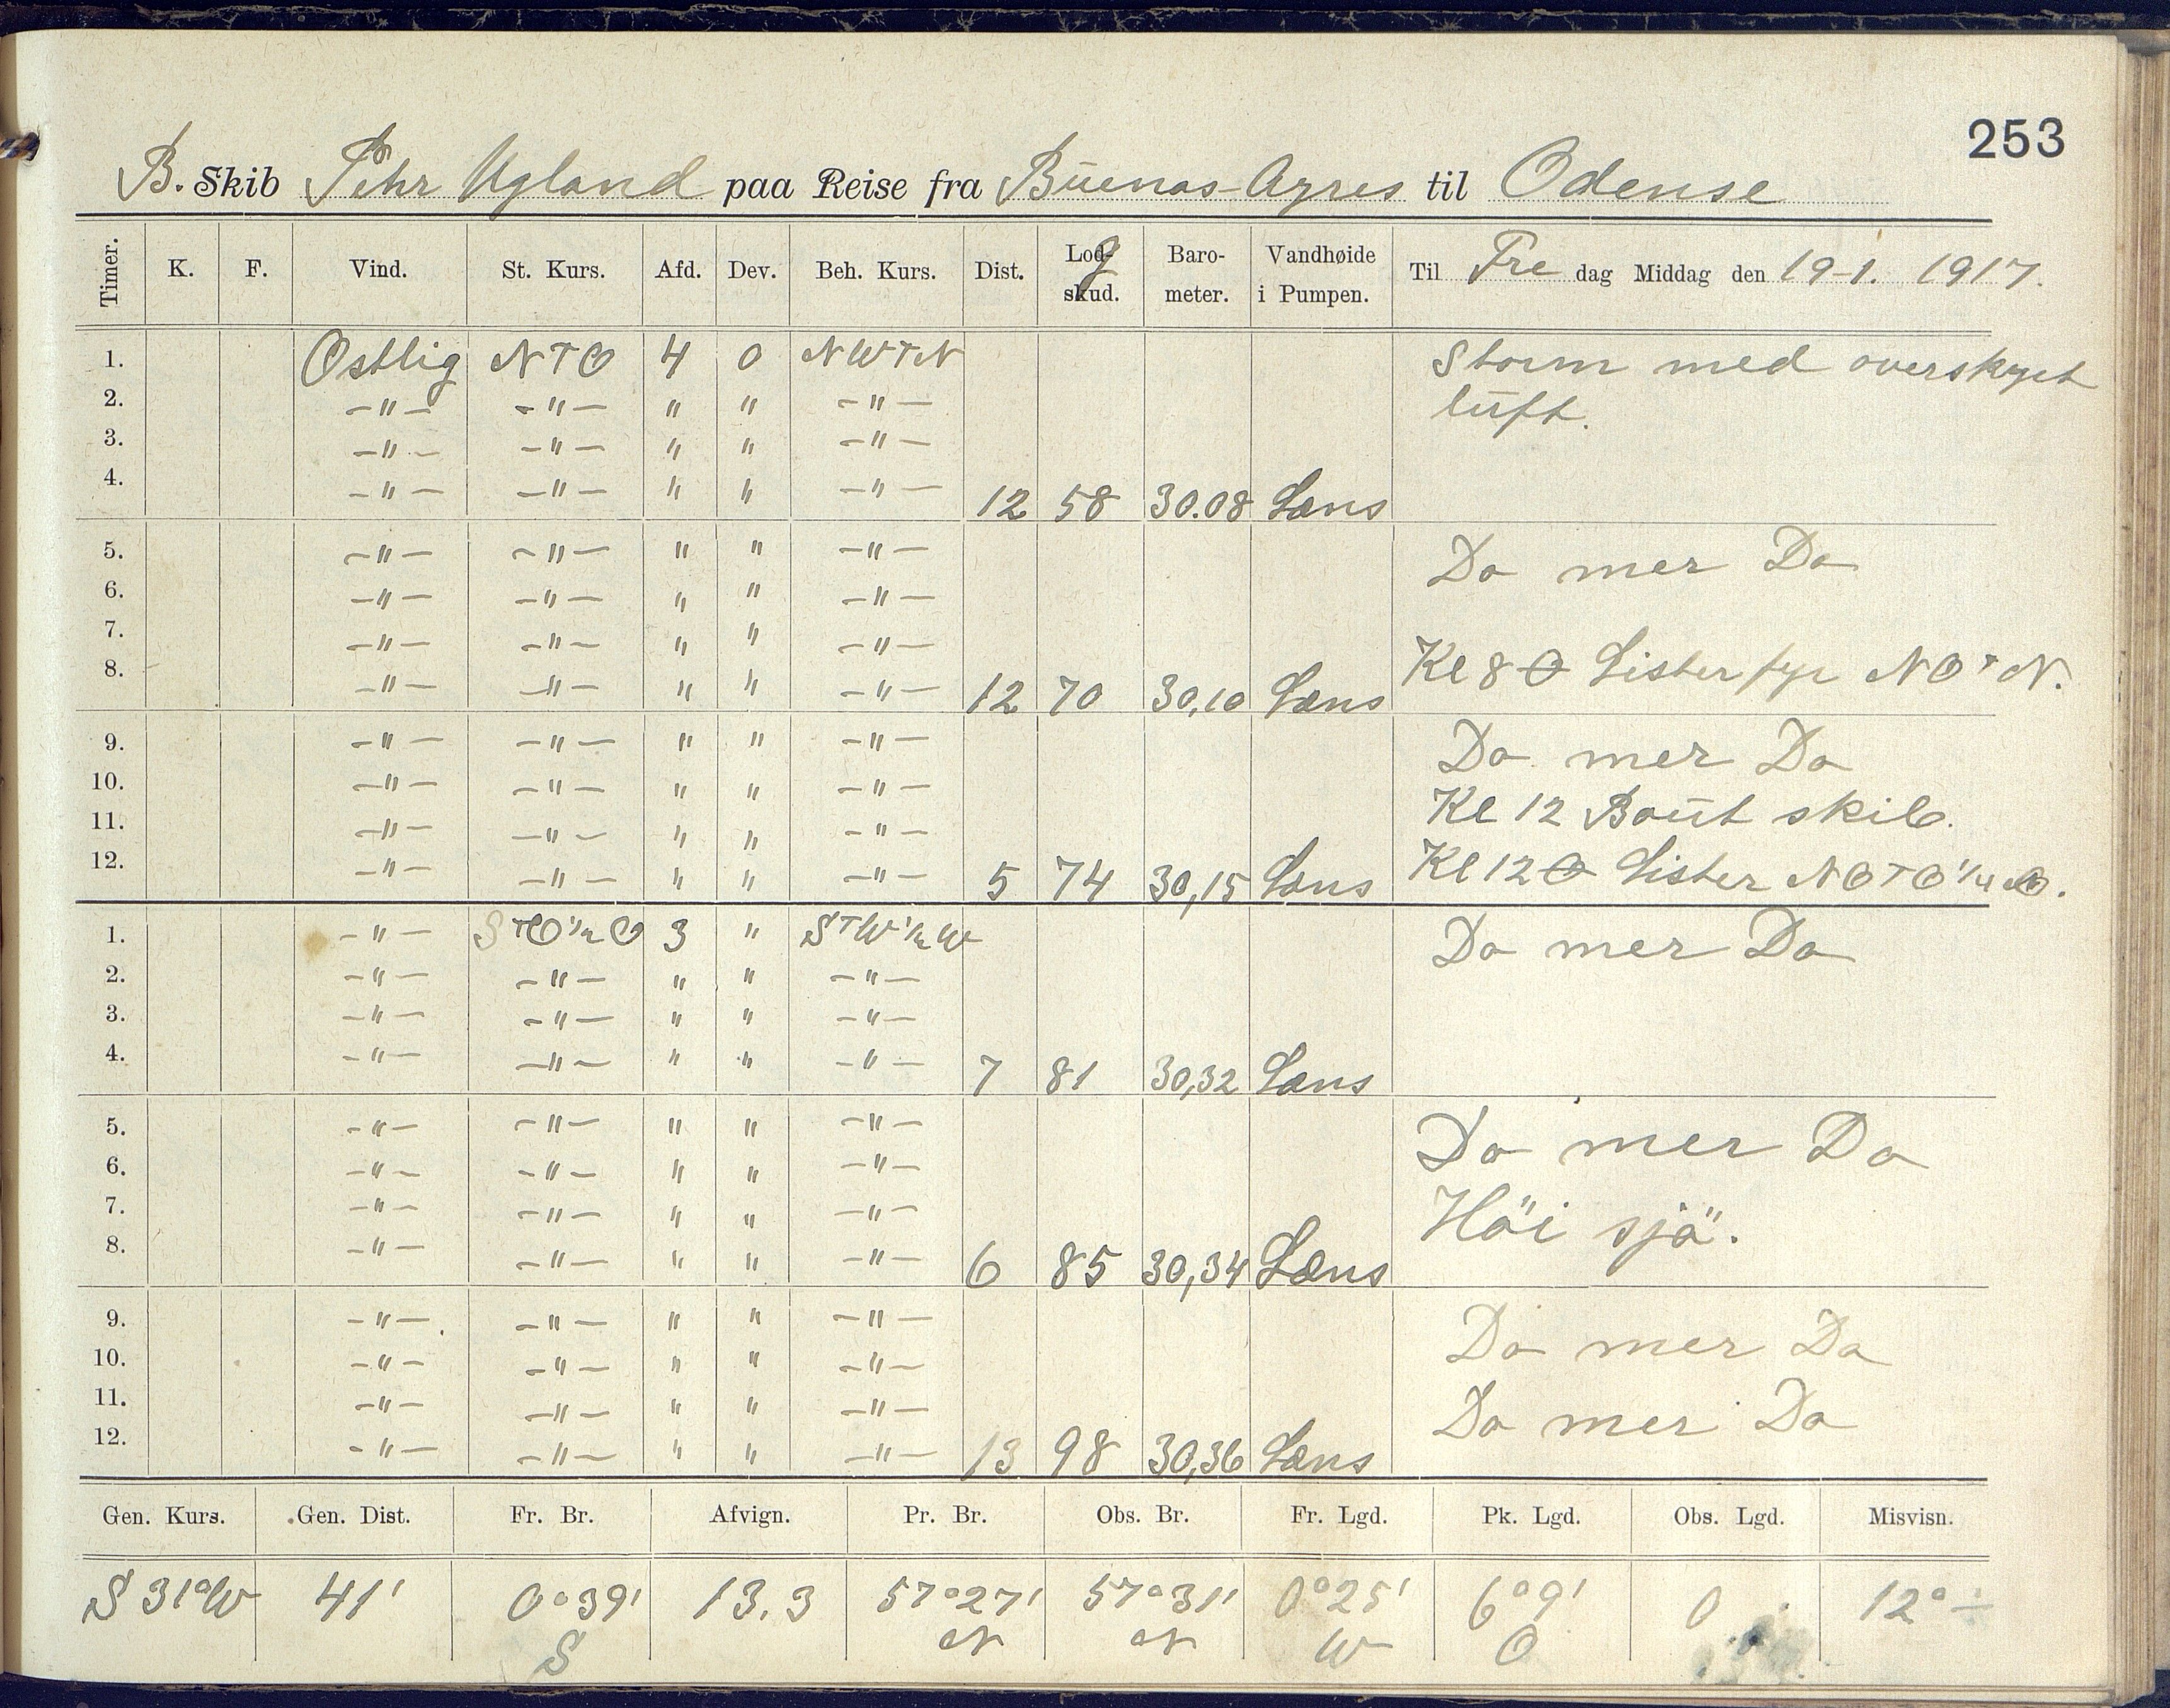 253
B. Skib Pehr Ugland paa Reise fra Buenos-Ayres til Odense
Timer. K. F. Vind. St. Kurs. Afd. Dev. Beh. Kurs. Dist. Logskud. Barometer. Vandhøide i Pumpen. Til Fre dag Middag den 19-1. 1917.
1. Ostlig NTO 4 0 NWTN Storm med overskyet
2. -"- -"- " " -"- luft.
3. -"- -"- " " -"-
4. -"- -"- " " -"- 12 58 30.08 Læns
5. -"- -"- " " -"- Do mer Do
6. -"- -"- " " -"-
7. -"- -"- " " -"- Kl 8 Lister fyr NOTN.
8. -"- -"- " " -"- 12 70 30,10 Læns
9. -"- -"- " " -"- Do mer Do
10. -"- -"- " " -"- Kl 12 Bout skib.
11. -"- -"- " " -"-
12. -"- -"- " " -"- 5 74 30,15 Læns Kl 12 Lister NOTO 1/4
1. -"- STO 1/2 O 3 " STW 1/2 W Do mer Do
2. -"- -"- " " -"-
3. -"- -"- " " -"-
4. -"- -"- " " -"- 7 81 30,32 Læns
5. -"- -"- " " -"- Do mer Do
6. -"- -"- " " -"-
7. -"- -"- " " -"- Höi sjö.
8. -"- -"- " " -"- 6 85 30,34 Læns
9. -"- -"- " " -"- Do mer Do
10. -"- -"- " " -"-
11. -"- -"- " " -"- Do mer Do
12. -"- -"- " " -"- 13 98 30,36 Læns
Gen. Kurs. Gen. Dist. Fr. Br. Afvign. Pr. Br. Obs. Br. Fr. Lgd. Pk. Lgd. Obs. Lgd. Misvisn.
S 31° W 41' 0°39' 13,3 57°27' 57°31' 0°25' 6°9' 0 12° ÷
S N N W O